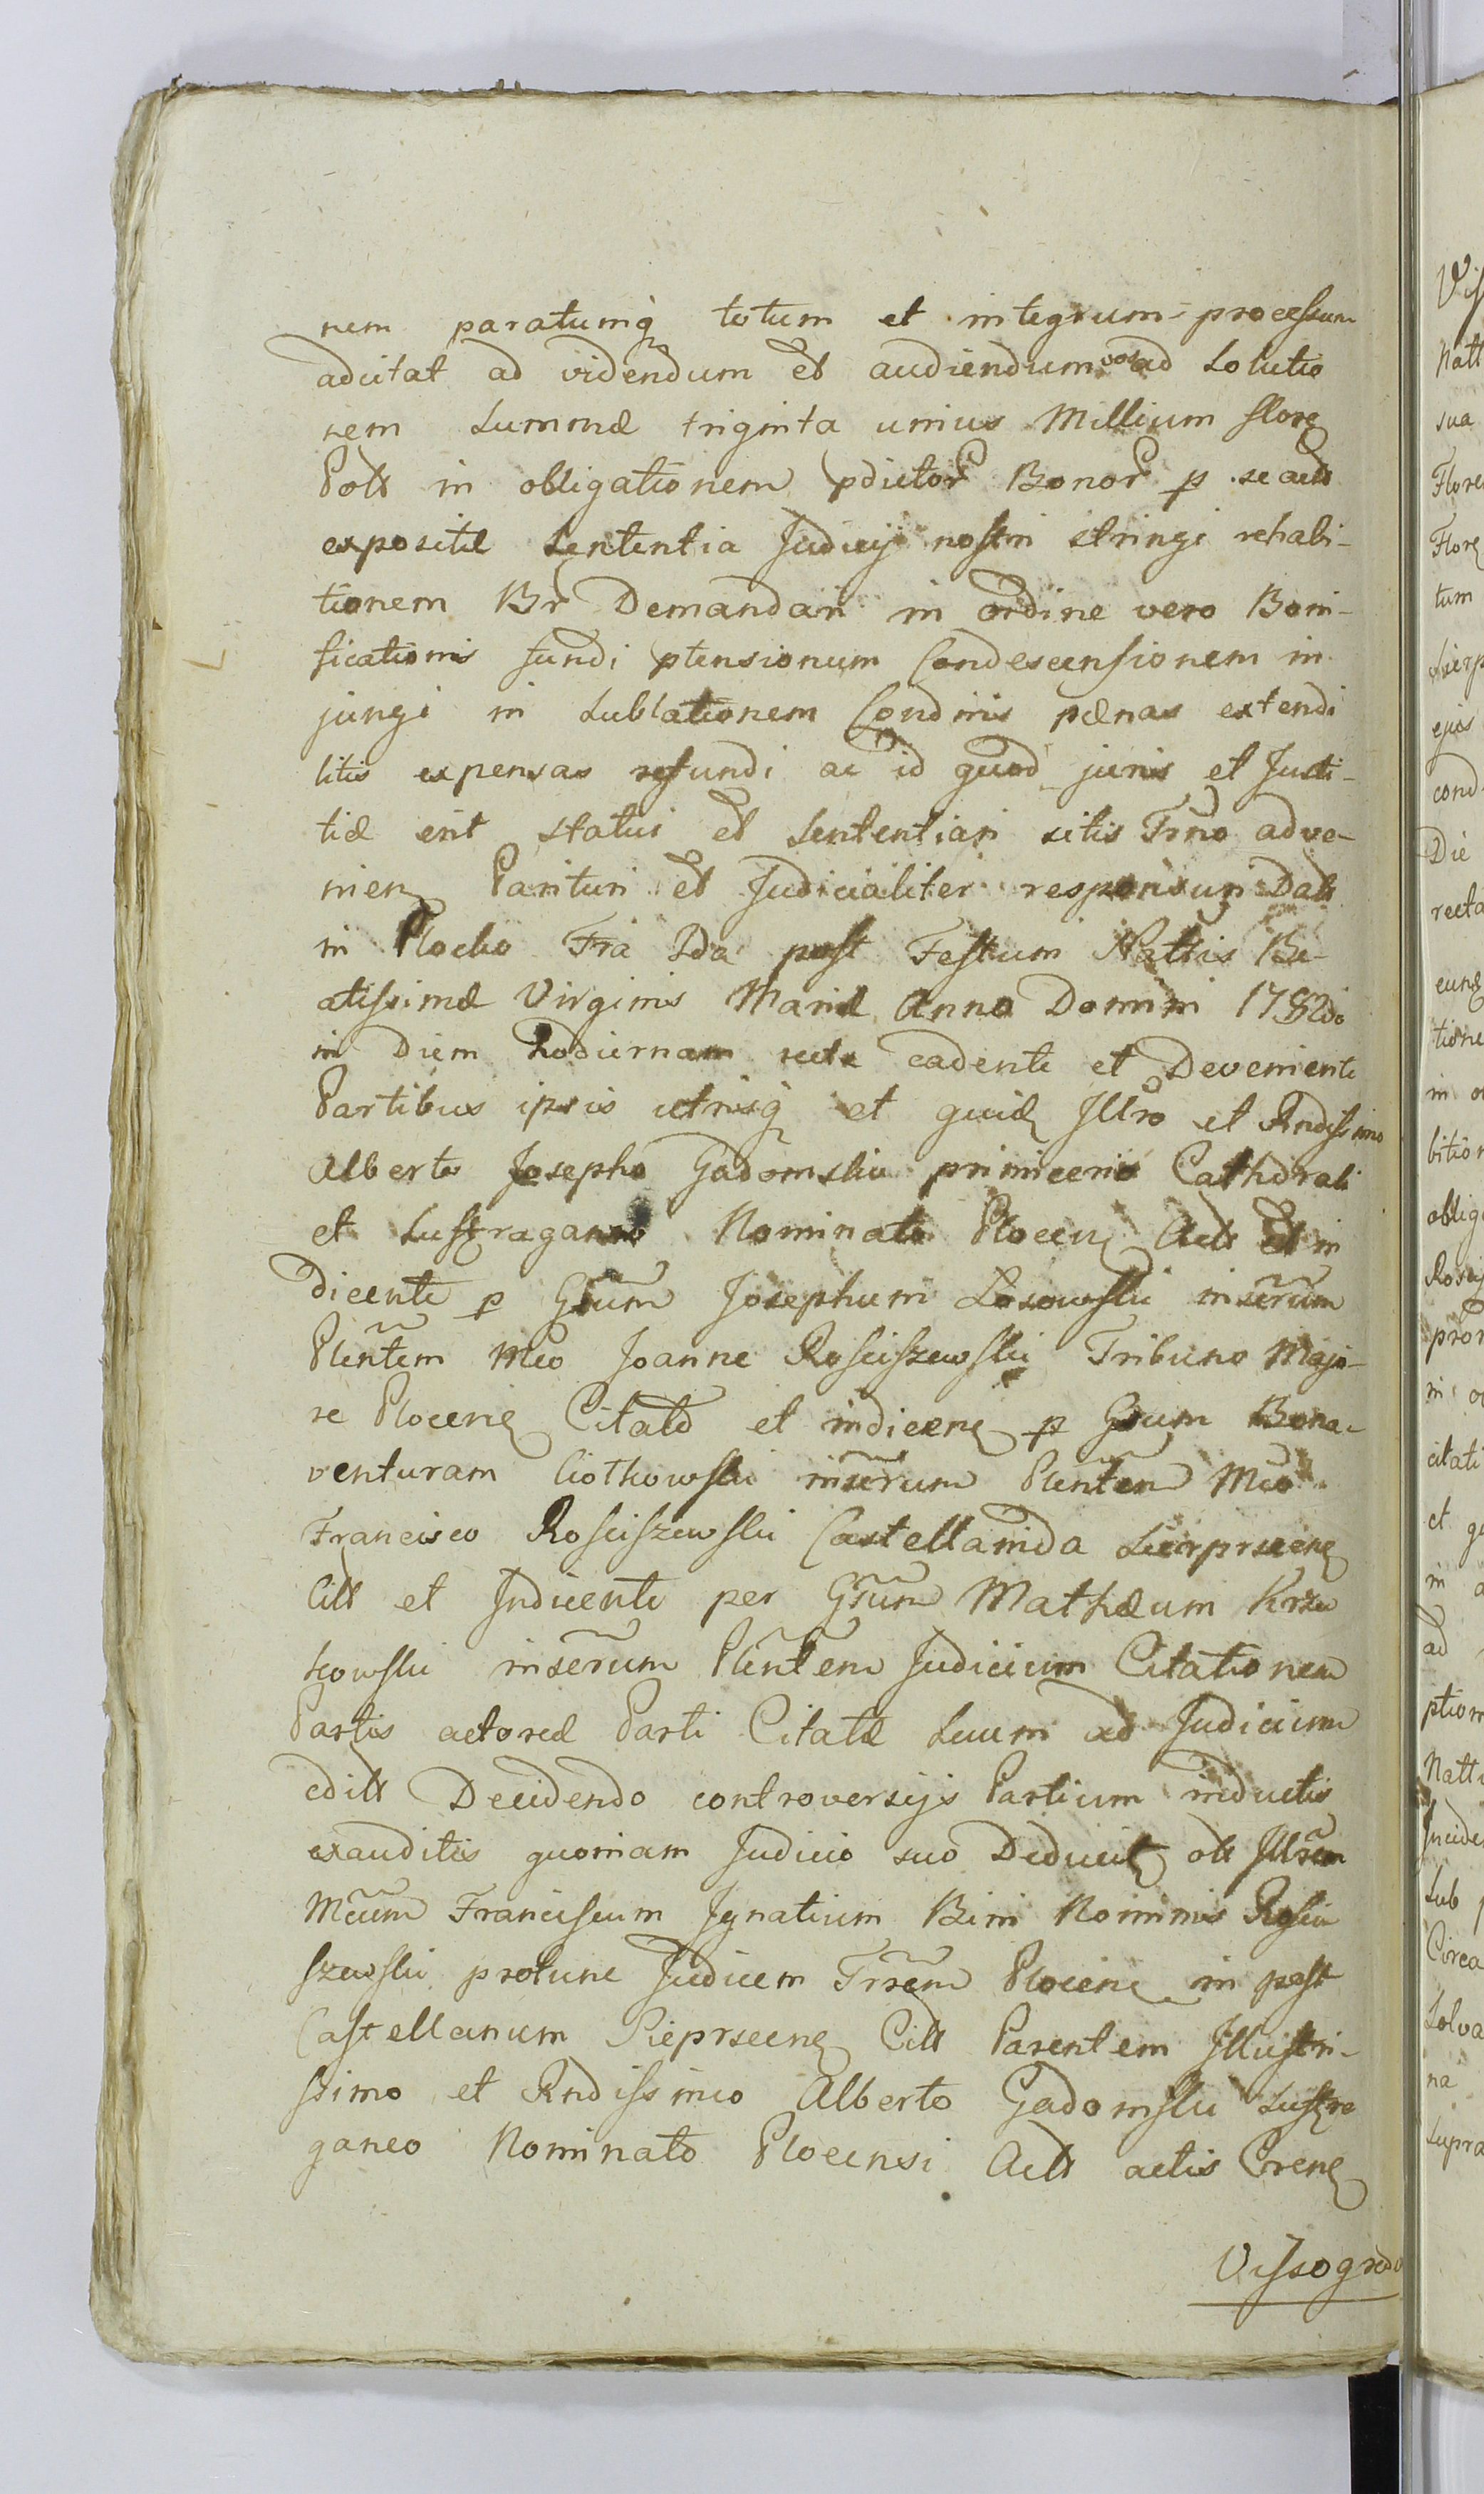 nem paratumq totum et integrum processum
adcitat ad videndum et audiendum vos ad Solutio
nem Summæ triginta unius Millium flore
Polł in obligationem pdictor Bonor p se actō
expositæ Sententia Judicij nostri stringi rehabi-
tionem Br Demandari in ordine vero Boni-
ficationis fundi ptensionum Condescensionem in
jungi in Sublationem Condnis pænas extendi
litis expensas refundi ac id quod juris et Justi-
tiæ erit statui et Sententiari sitis Trno adve-
nien Parituri et Judicialiter responsuri Datt
in Plocko Fria 2da post Festum Nattis Be-
atissimæ Virginis Mariæ Anno Domini 1782do
in Diem hodiernam recte cadente et Deveniente
Partibus ipsis utrisq et quid Illro et Rndissimo
Alberto Josepho Gadomski primicerio Cathdrali
et Suffraganeo Nominato Plocen Actt et in
dicente p Grum Josephum Losowski inserum
Plentem Mco Joanne Rosciszewski Tribuno Majo-
re Plocene Citato et indicene p Grum Bona-
venturam Ciotkowski inserum Plentem Mco
Francisco Rosciszewski Castellanida Sierprscene
Citt et Indicente per Grum Mathæum Krzu
kowski inserum Plentem Judicium Citationem
Partis actoreæ Parti Citatæ Suum ad Judicium
editt Decidendo controversijs Partium inductis
exauditis quoniam Judicio suo Deducit ott Illrem
Mcum Franciscum Ignatium Bini Nominis Rosci
szewski protunc Judicem Trrem Plocene in post
Castellanum Sieprscene Citt Parentem Illustri-
ssimo et Rndissimo Alberto Gadomski Suffra
ganeo Nominato Plocensi Actt actis Crene
Vissogrado